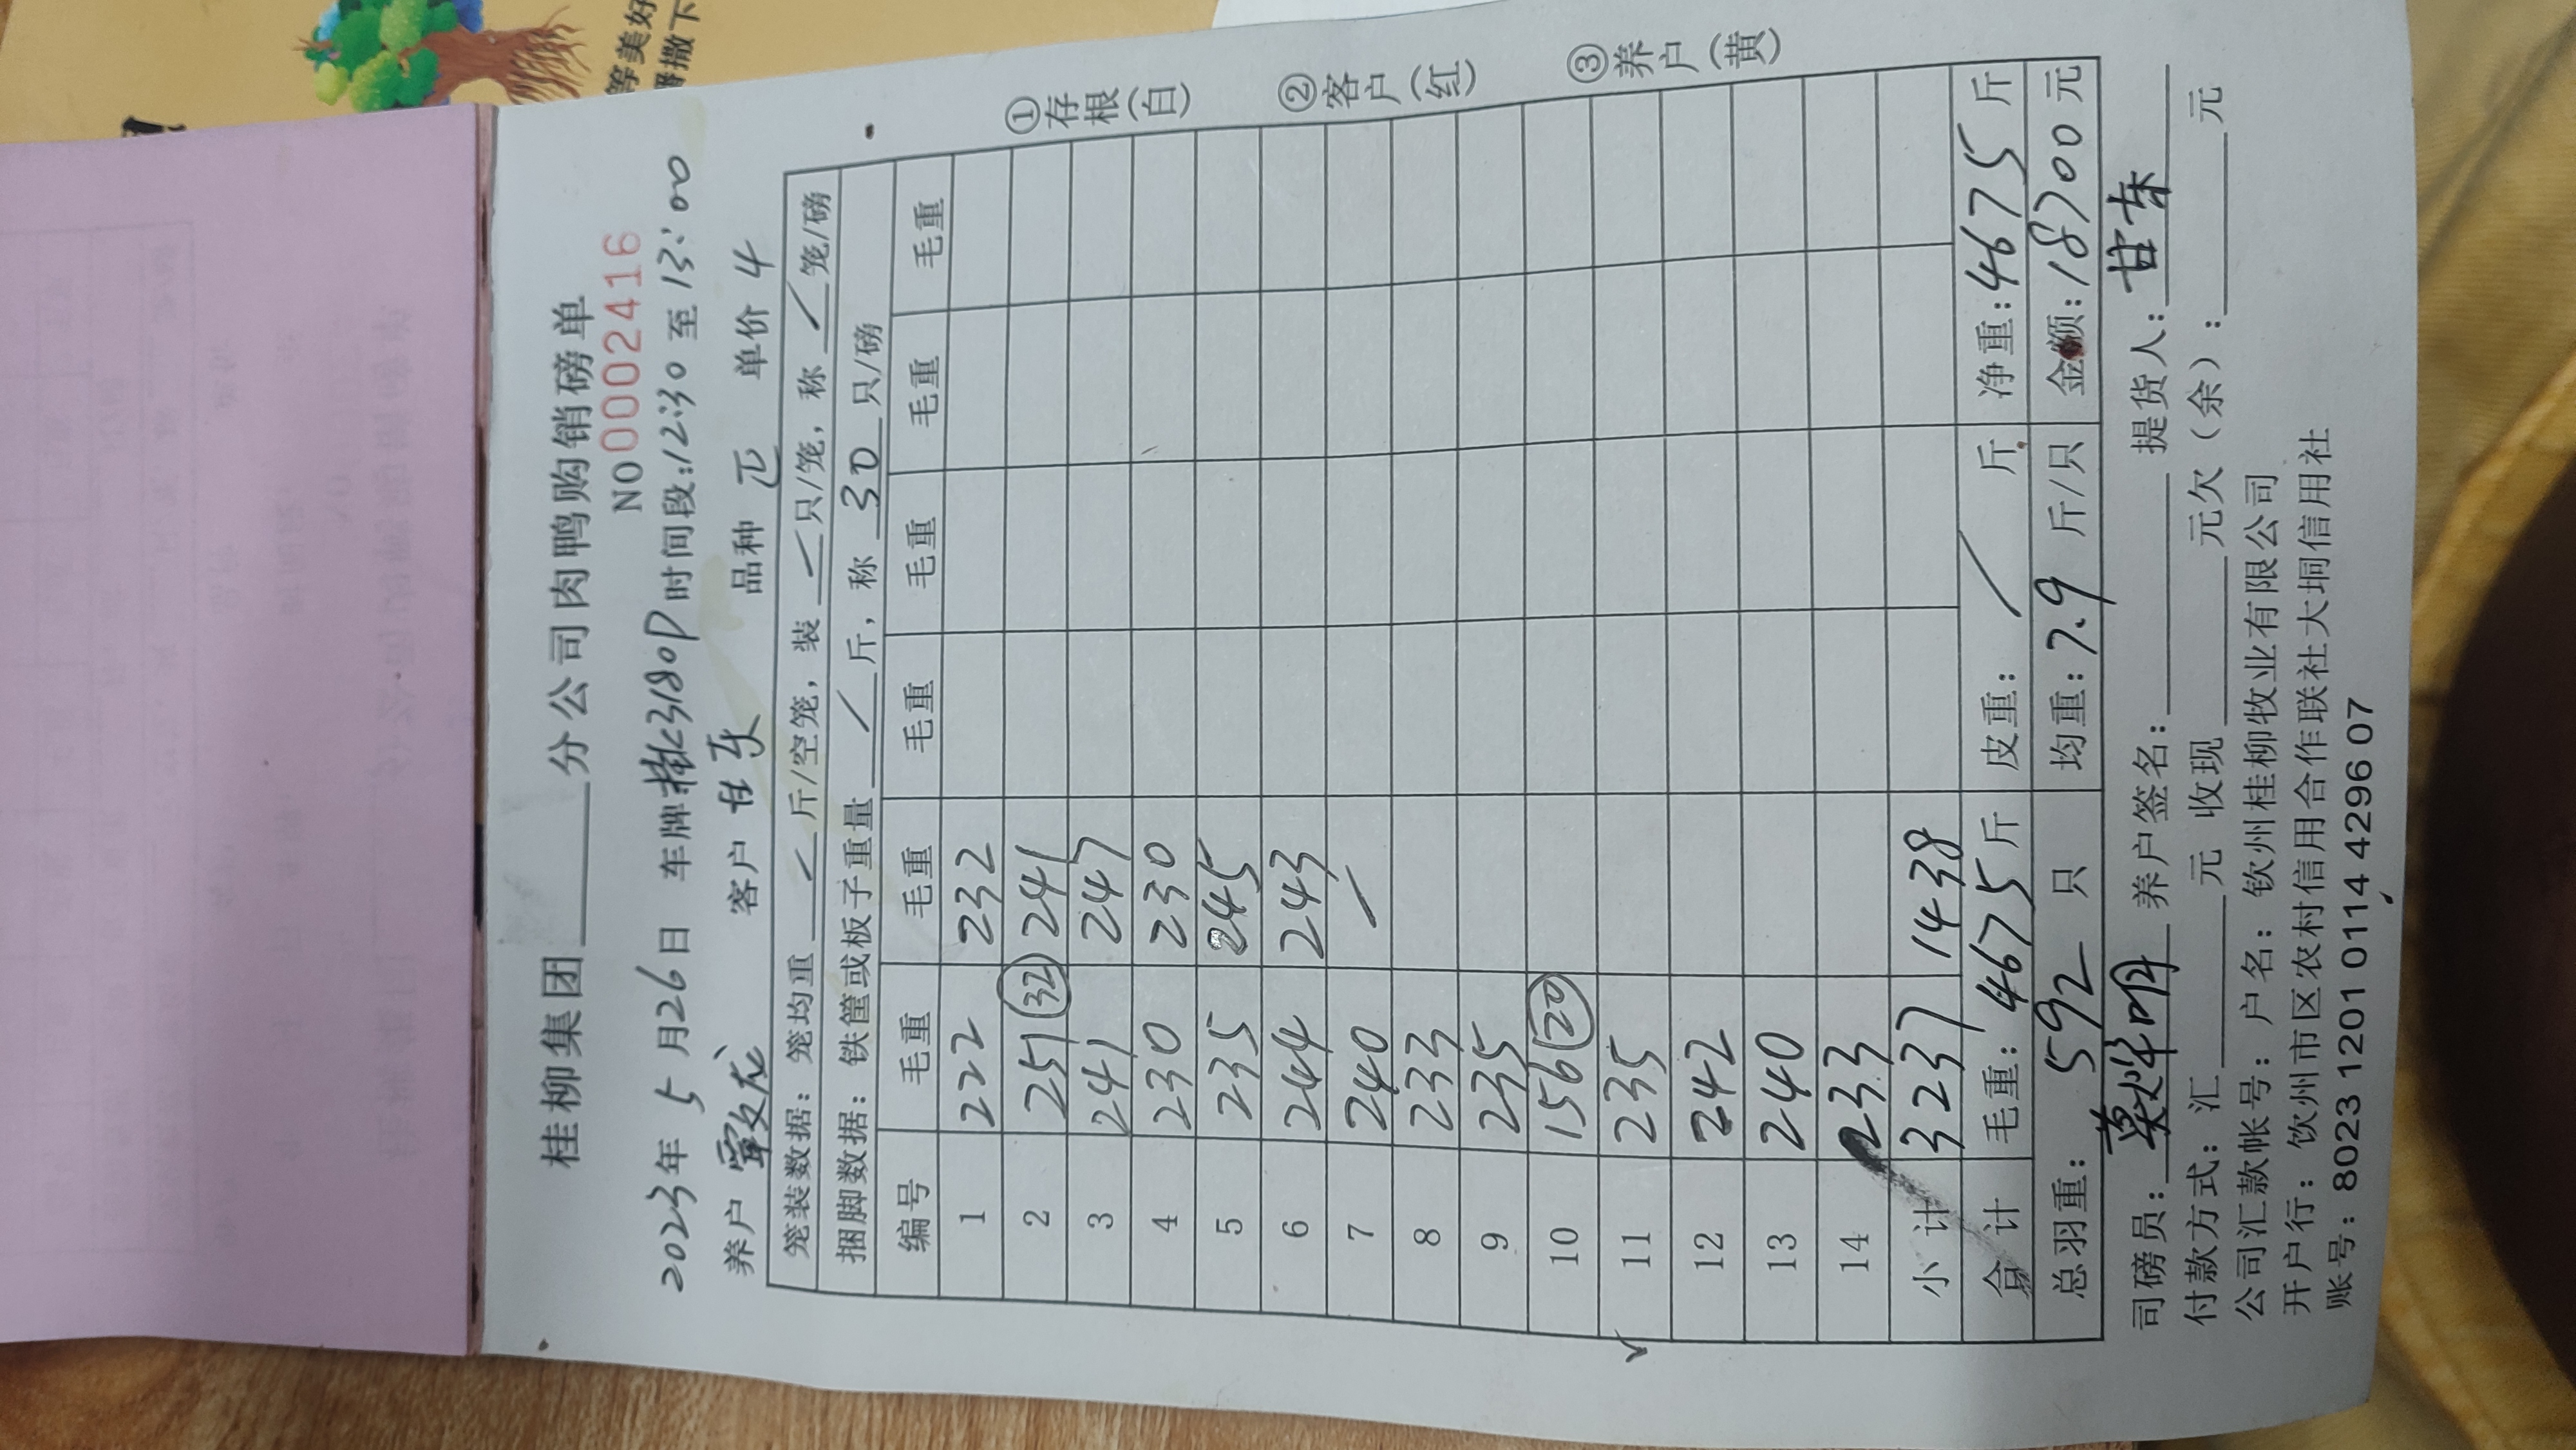 桂柳集团______分公司肉鸭购销磅单
NO 0002416
2023年 5月26日 车牌桂C3180P 时间段:12:30 至 13:00
养户 客户 甘东 品种 正 单价 4
笼装数据：笼均重 / 斤/空笼，装 / 只/笼，称 / 笼/磅
捆脚数据：铁筐或板子重量 / 斤，称 30 只/磅
编号 毛重 毛重 毛重 毛重 毛重 毛重
1 222 232
2 251 (32) 241
3 241 247
4 230 230
5 235 245
6 244 243
7 240 /
8 233
9 235
10 156 (20)
11 235
12 242
13 240
14 233
小计 3237 1438
合计 毛重：4675斤 皮重： / 斤 净重：4675斤
总羽重： 592 只 均重：7.9 斤/只 金额：18700元
司磅员： 养户签名： 提货人：甘东
付款方式：汇______元 收现______元欠（余）：______元
公司汇款帐号：户名：钦州桂柳牧业有限公司
开户行：饮州市区农村信用合作联社大垌信用社
账号：8023 1201 0114 4296 07
①存根(白) ②客户(红) ③养户(黄)
等美好